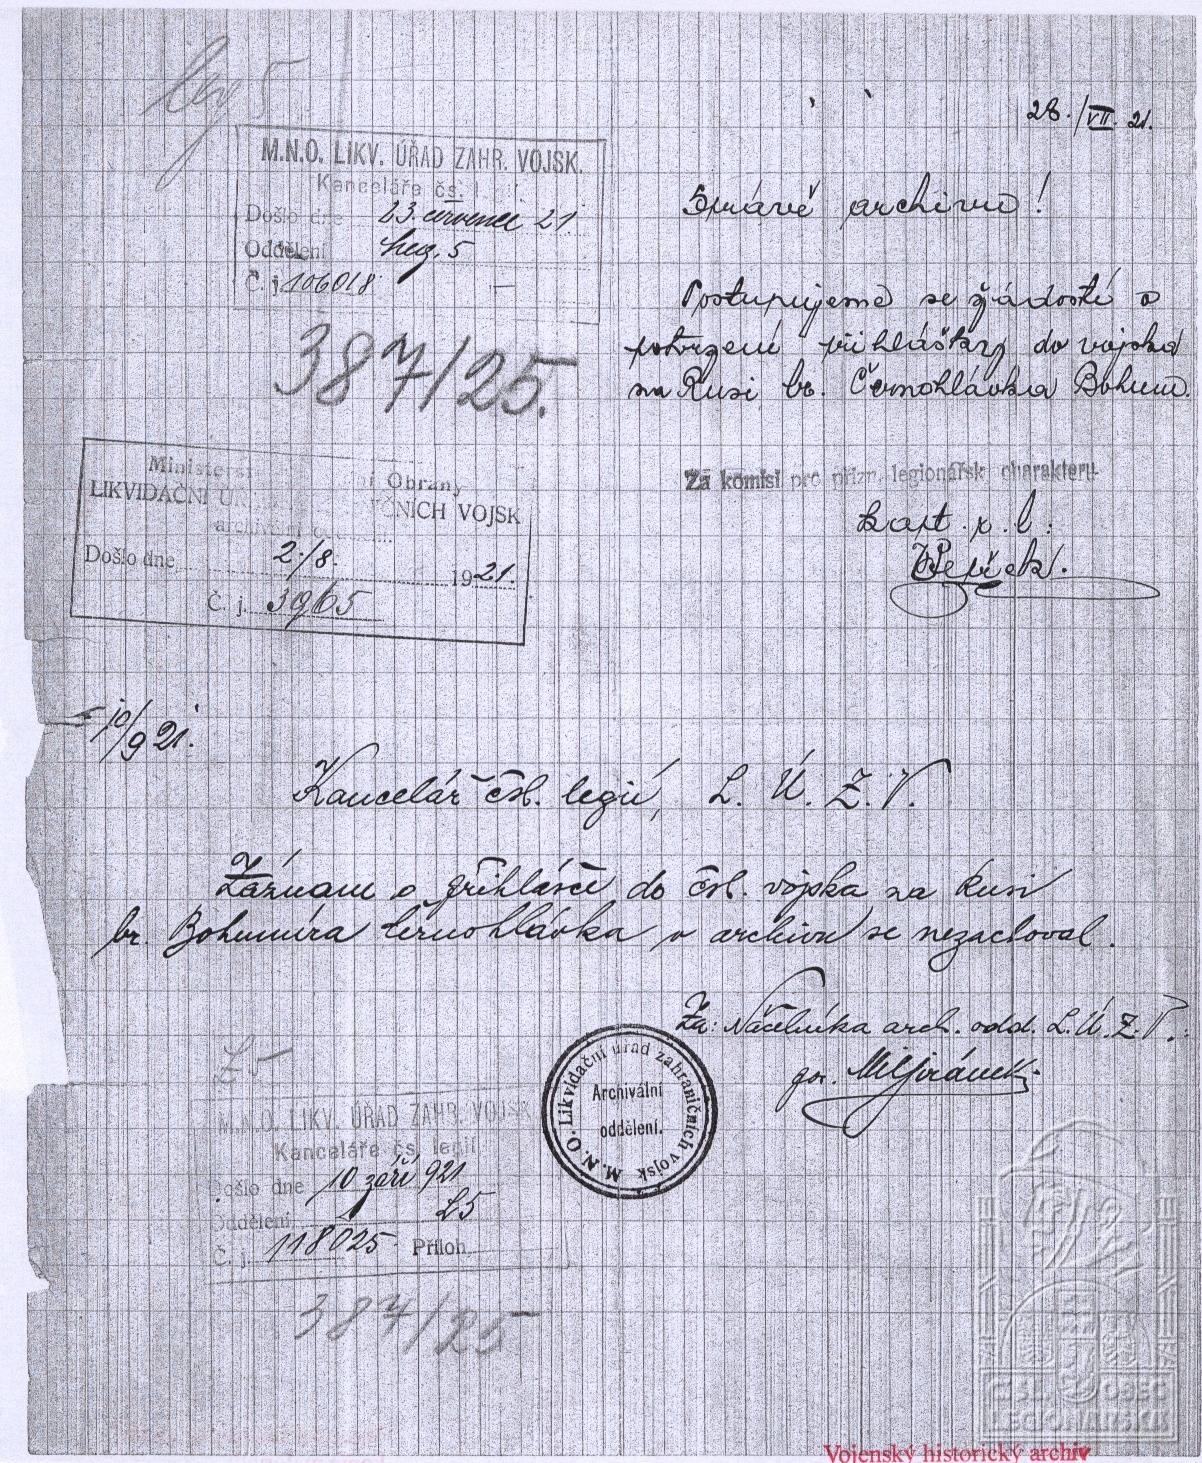 leg 5
28./VII. 21.
M.N.O. LIKV. ÚŘAD ZAHR. VOJSK.
Kanceláře čs. l
Došlo dne 23. července 21
Oddělení Leg. 5
Č. j. 106018
Správě archivu!
Postupujeme se žádostí o
potvrzení přihlášky do vojska
na Rusi br. Černohlávka Bohum.
387/25.
Za komisi pro přizn. legionářsk charakteru
kapt. p. l.:
Ministers i Obrany
LIKVIDAČNÍ ÚŘ ČNÍCH VOJSK
archivní o
Došlo dne 2./8. 1921.
Č. j. 3965
10/9 21.
Kancelář čsl. legií, L. Ú. Z. V.
Záznam o přihlášce do čsl. vojska na Rusi
br. Bohumíra Černohlávka v archivu se nezachoval.
Za: Náčelníka arch. odd. L. Ú. Z. V.:
M. N. O. Likvidační úrad zahraničních vojsk
Archivální
oddělení.
L5
M.N.O. LIKV. ÚŘAD ZAHR. VOJSK
Kanceláře čs. legií
Došlo dne 10 září 921
Oddělení L5
Č. j. 118025 Příloh
387/25
ČSL. OBEC
LEGIONÁŘSKÁ
Vojenský historický archiv